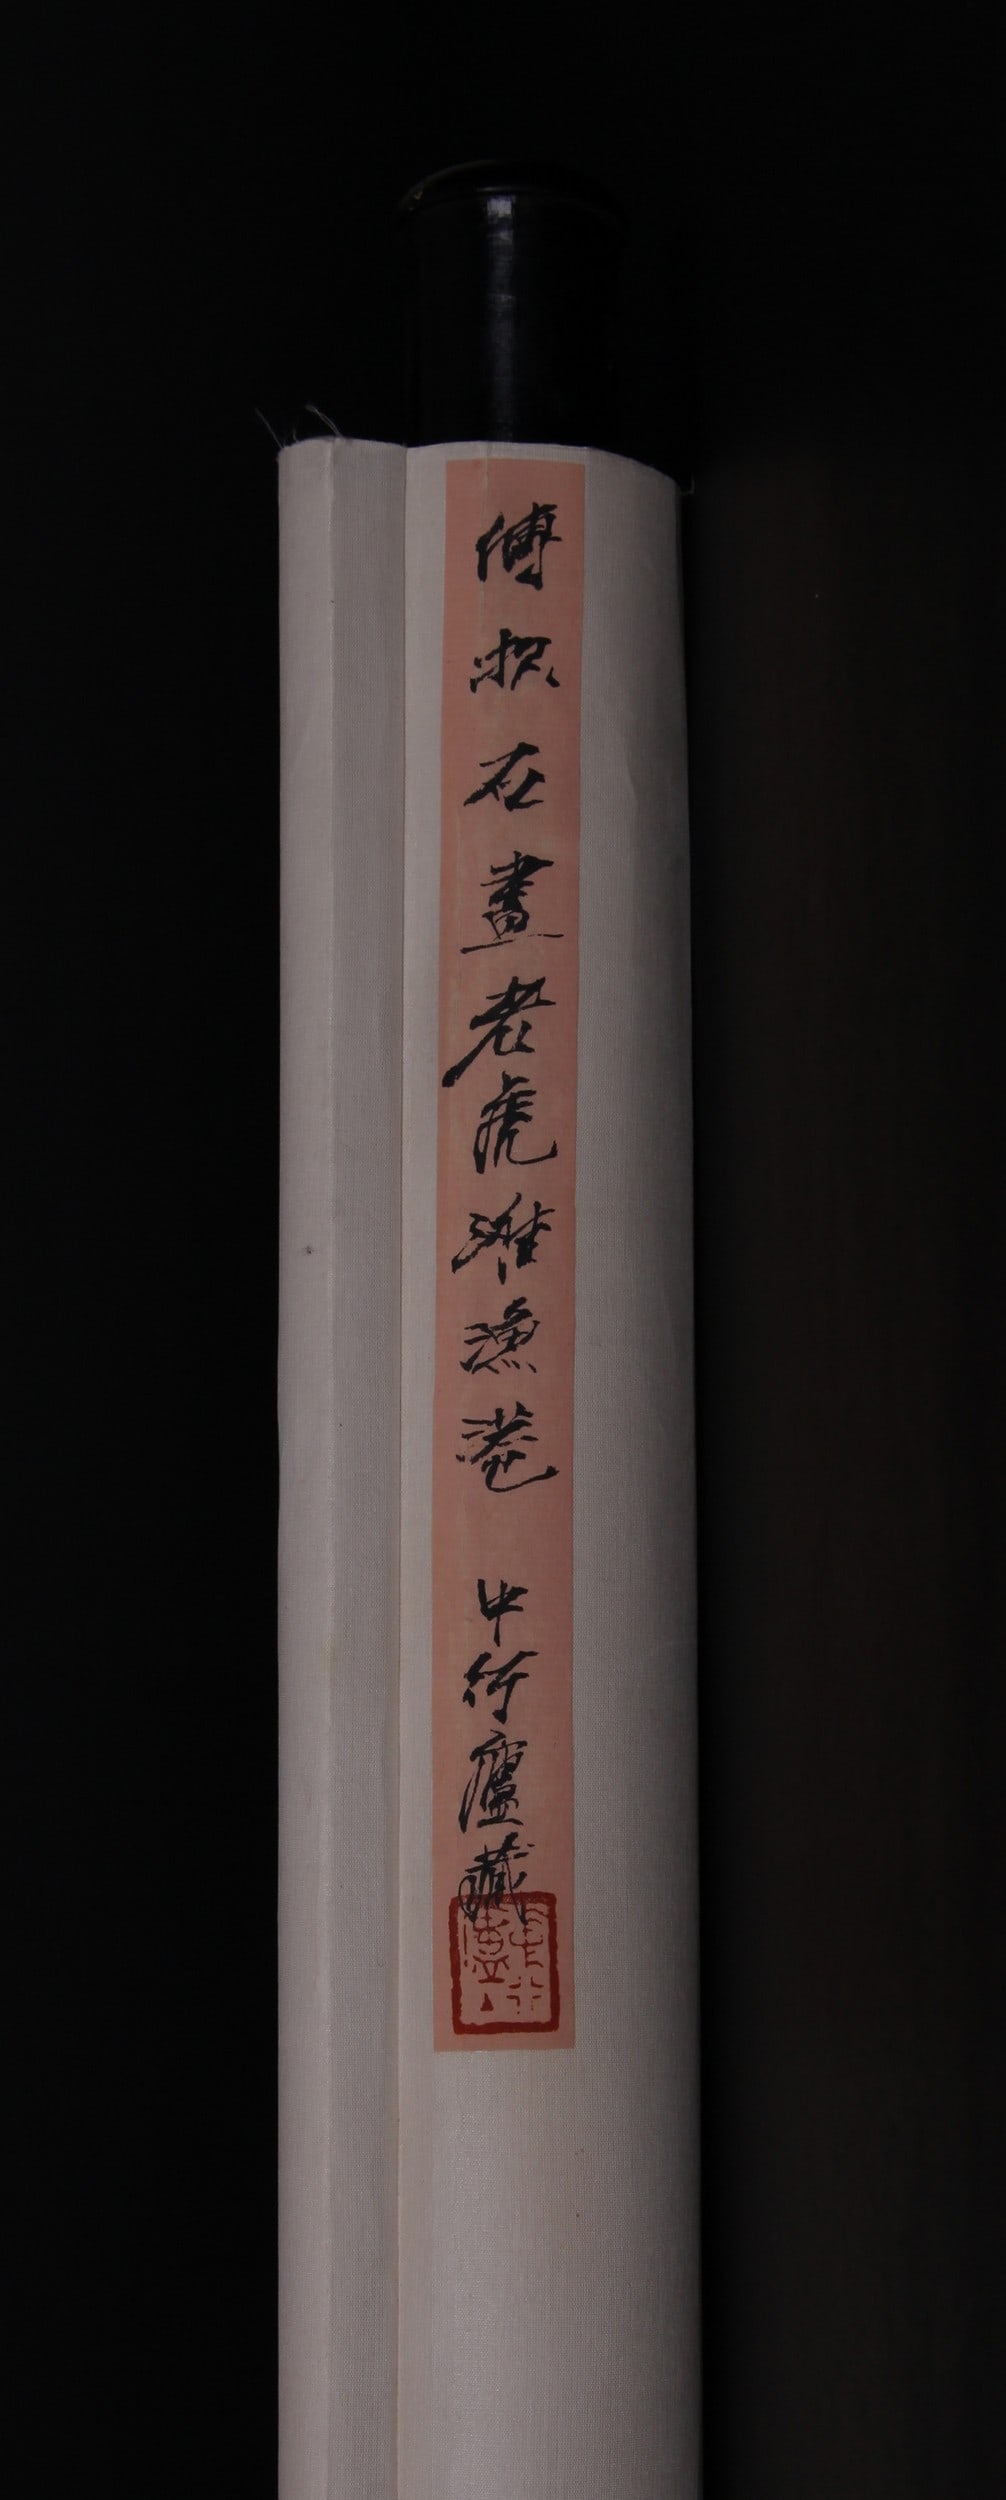 傅抱石畫老虎滩漁港 中行廬藏